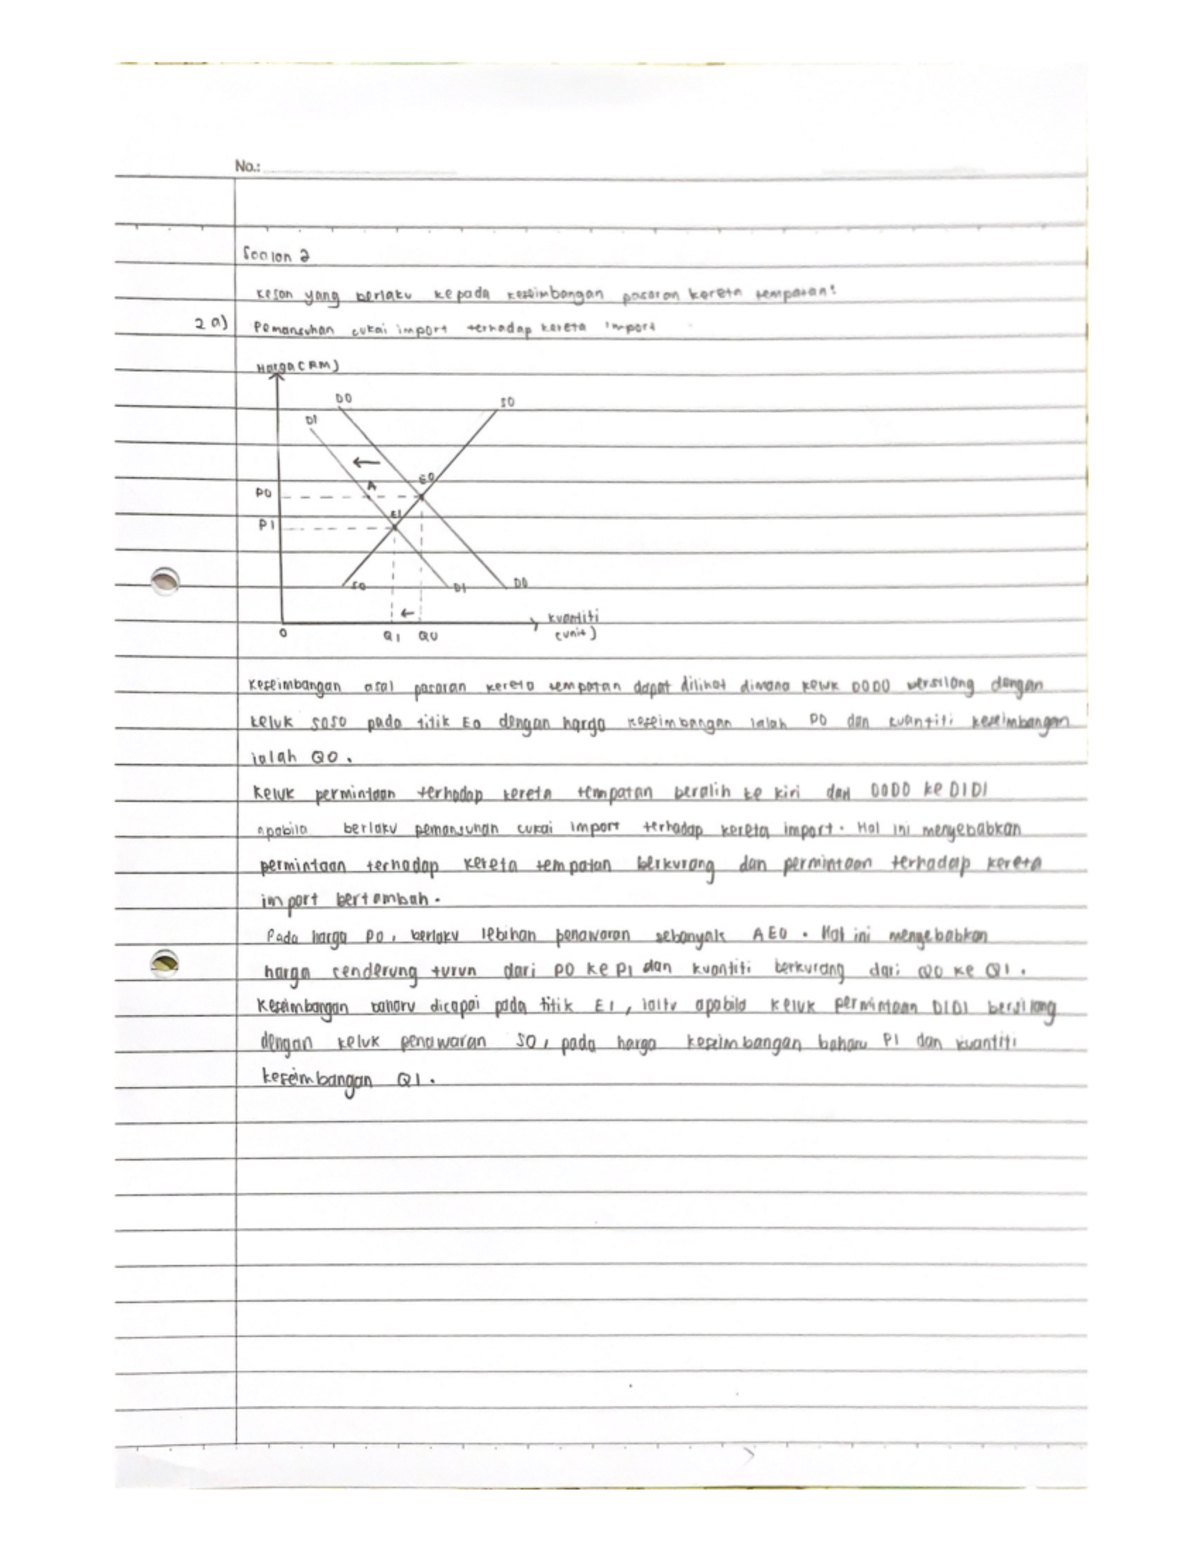 No.:
Soalan 2
Kesan yang berlaku kepada keseimbangan pasaran kereta tempatan:
2 a) Pemansuhan cukai import terhadap kereta import
Harga (RM)
D0
S0
D1
E0
A
P0
E1
P1
S0
D1
D0
Kuantiti
(unit)
0
Q1
Q0
Keseimbangan asal pasaran kereta tempatan dapat dilihat dimana keluk D0D0 bersilang dengan
keluk S0S0 pada titik E0 dengan harga keseimbangan ialah P0 dan kuantiti keseimbangan
ialah Q0.
Keluk permintaan terhadap kereta tempatan beralih ke kiri dari D0D0 ke D1D1
apabila berlaku pemansuhan cukai import terhadap kereta import. Hal ini menyebabkan
permintaan terhadap kereta tempatan berkurang dan permintaan terhadap kereta
import bertambah.
Pada harga P0, berlaku lebihan penawaran sebanyak AE0. Hal ini menyebabkan
harga cenderung turun dari P0 ke P1 dan kuantiti berkurang dari Q0 ke Q1.
Keseimbangan baharu dicapai pada titik E1, iaitu apabila keluk permintaan D1D1 bersilang
dengan keluk penawaran S0, pada harga keseimbangan baharu P1 dan kuantiti
keseimbangan Q1.